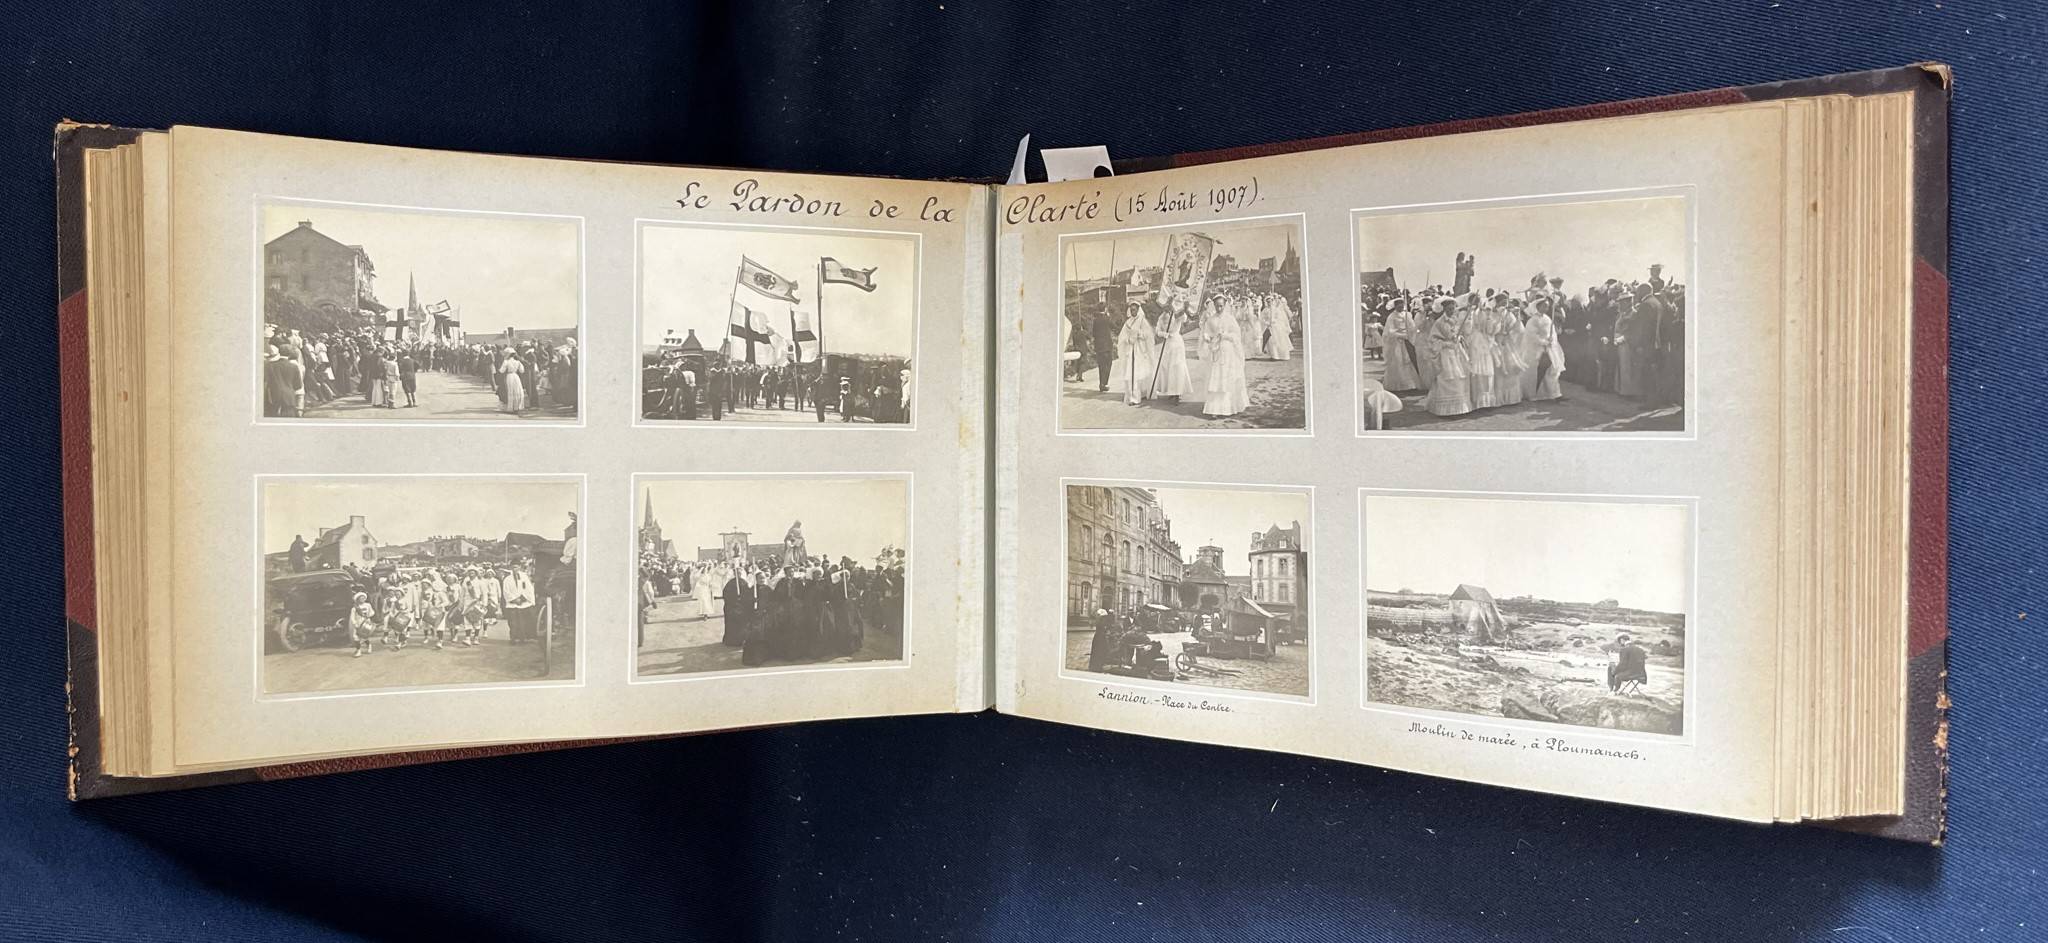 Le Pardon de la Clarté (15 Août 1907).
Lannion. - Place du Centre.
Moulin de marée, à Ploumanach.